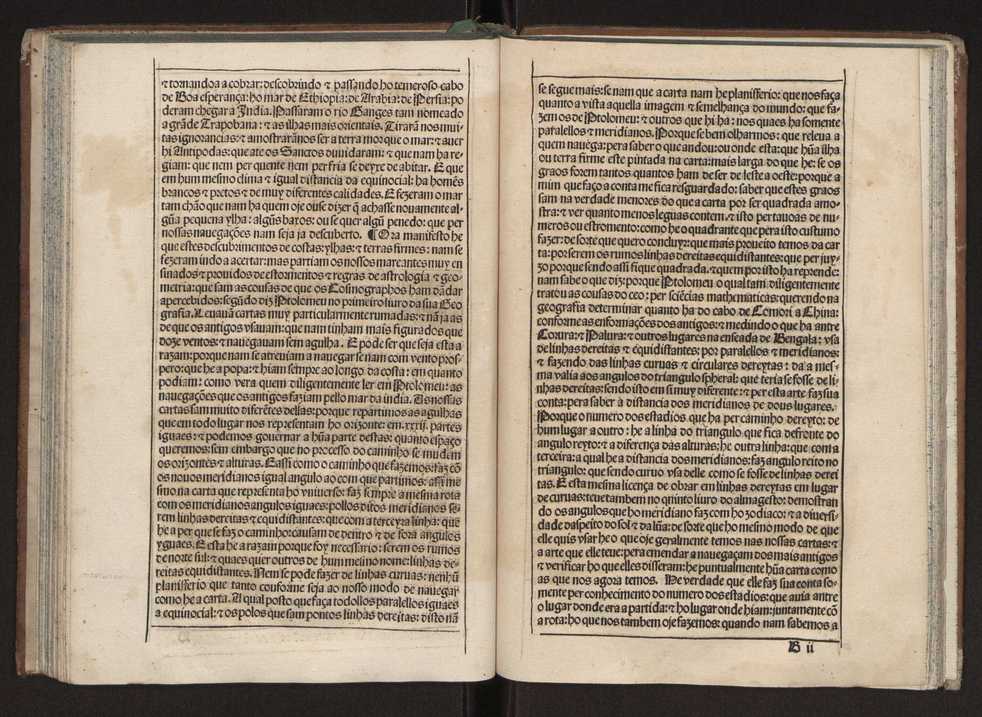 ⁊ tornandoa a cobrar: descobrindo ⁊ passando ho temeroso cabo
de Boa esperança: ho mar de Ethiopia: de Arabia: de Persia: po
deram chegar a India. Passaram o rio Ganges tam nomeado
a grãde Trapobana: ⁊ as ilhas mais orientais. Tirarã nos mui
tas ignorancias: ⁊ amostrarãnos ser a terra mor que o mar: ⁊ auer
hi Antipodas: que ate os Sanctos duuidaram: ⁊ que nam ha re-
giam: que nem per quente nem per fria se deyxe de abitar. E que
em hum mesmo clima ⁊ igual distancia da equinocial: ha homẽs
brancos ⁊ pretos ⁊ de muy diferentes calidades. E fezeram o mar
tam chão que nam ha quem oje ouse dizer q̃ achasse nouamente al-
gũa pequena ylha: algũs baxos: ou se quer algũ penedo: que per
nossas nauegações nam seja ja descuberto. ¶ Ora manifesto he
que estes descubrimentos de costas: ylhas: ⁊ terras firmes: nam se
fezeram indo a acertar: mas partiam os nossos mareantes muy en
sinados ⁊ prouidos de estormentos ⁊ regras de astrologia ⁊ geo-
metria: que sam as cousas de que os Cosmographos ham dãdar
apercebidos: segũdo diz Ptolomeu no primeiro liuro da sua Geo
grafia. Leuauã cartas muy particularmente rumadas: ⁊ nã ja as
de que os antigos vsauam: que nam tinham mais figurados que
doze ventos: ⁊ nauegauam sem agulha. E pode ser que seja esta a
razam: porque nam se atreuiam a nauegar se nam com vento pros-
pero: que he a popa: ⁊ hiam sempre ao longo da costa: em quanto
podiam: como vera quem diligentemente ler em Ptolomeu: as
nauegações que os antigos faziam pello mar da india. As nossas
cartas sam muito diferẽtes dellas: porque repartimos as agulhas
que em todo lugar nos representam ho orizonte: em .xxxij. partes
iguaes: ⁊ podemos gouernar a hũa parte destas: quanto espaço
queremos: sem embargo que no processo do caminho se mudem
os orizontes ⁊ alturas. E assi como o caminho que fazemos: faz cõ
os nouos meridianos igual angulo ao com que partimos: assi me
smo na carta que representa ho vniuerso: faz sempre a mesma rota
com os meridianos angulos iguaes: pollos ditos meridianos se-
rem linhas dereitas ⁊ equidistantes: que com a terceyra linha: que
he a per que se faz o caminho: causam de dentro ⁊ de fora angulos
yguaes. E esta he a razam porque foy necessario: serem os rumos
de norte sul: ⁊ quaes quer outros de hum mesmo nome: linhas de-
reitas equidistantes. Nem se pode fazer de linhas curuas: nenhũ
planisferio que tanto conforme seja ao nosso modo de nauegar
como he a carta. A qual posto que faça todollos parallelos iguaes
a equinocial: ⁊ os polos que sam pontos linhas dereitas: disto nã
se segue mais: se nam que a carta nam he planisferio: que nos faça
quanto a vista aquella imagem ⁊ semelhança do mundo: que fa-
zem os de Ptolomeu: ⁊ outros que hi ha: nos quaes ha somente
parallelos ⁊ meridianos. Porque se bem olharmos: que releua a
quem nauega: pera saber o que andou: ou onde esta: que hũa ilha
ou terra firme este pintada na carta: mais larga do que he: se os
graos forem tantos quantos ham de ser de leste a oeste: porque a
mim que faço a conta me fica resguardado: saber que estes graos
sam na verdade menores do que a carta por ser quadrada amo-
stra: ⁊ ver quanto menos leguas contem: ⁊ isto per tauoas de nu-
meros ou estromento: como he o quadrante que pera isto custumo
fazer: de sorte que quero concluyr: que mais proueito temos da car
ta: por serem os rumos linhas dereitas equidistantes: que per juy-
zo por que sendo assi fique quadrada. ⁊ quem por isto ha reprende:
nam sabe o que diz: porque Ptolomeu o qual tam diligentemente
tratou as cousas do ceo: per sciẽcias mathematicas: querendo na
geografia determinar quanto ha do cabo de Comori a China:
conforme as enformações dos antigos: ⁊ medindo o que ha antre
Corura: ⁊ Palura: ⁊ outros lugares na enseada de Bengala: vsa
de linhas dereitas ⁊ equidistantes: por parallelos ⁊ meridianos:
⁊ fazendo das linhas curuas ⁊ circulares dereytas: da a mes-
ma valia aos angulos do triangulo spheral: que teria se fosse de li-
nhas dereitas: sendo isto em si muy diferente: ⁊ per esta arte faz sua
conta: pera saber a distancia dos meridianos de dous lugares.
Porque o numero dos estadios que ha per caminho dereyto: de
hum lugar a outro: he a linha do triangulo que fica defronte do
angulo reyto: ⁊ a diferença das alturas: he outra linha: que com a
terceira: a qual he a distancia dos meridianos: faz angulo reito no
triangulo: que sendo curuo vsa delle como se fosse de linhas derei
tas. E esta mesma licença de obrar em linhas dereytas em lugar
de curuas: teue tambem no quinto liuro do almagesto: demostran
do os angulos que ho meridiano faz com ho zodiaco: ⁊ a diuersi-
dade da speito do sol ⁊ da lũa: de sorte que ho mesmo modo de que
elle quis vsar he o que oje geralmente temos nas nossas cartas: ⁊
a arte que elle teue: pera emendar a nauegaçam dos mais antigos
⁊ verificar ho que elles disseram: he puntualmente hũa carta como
as que nos agora temos. He verdade que elle faz sua conta so-
mente per conhecimento do numero dos estadios: que auia antre
o lugar donde era a partida: ⁊ ho lugar onde hiam: juntamente cõ
a rota: ho que nos tambem oje fazemos: quando nam sabemos a
B ii